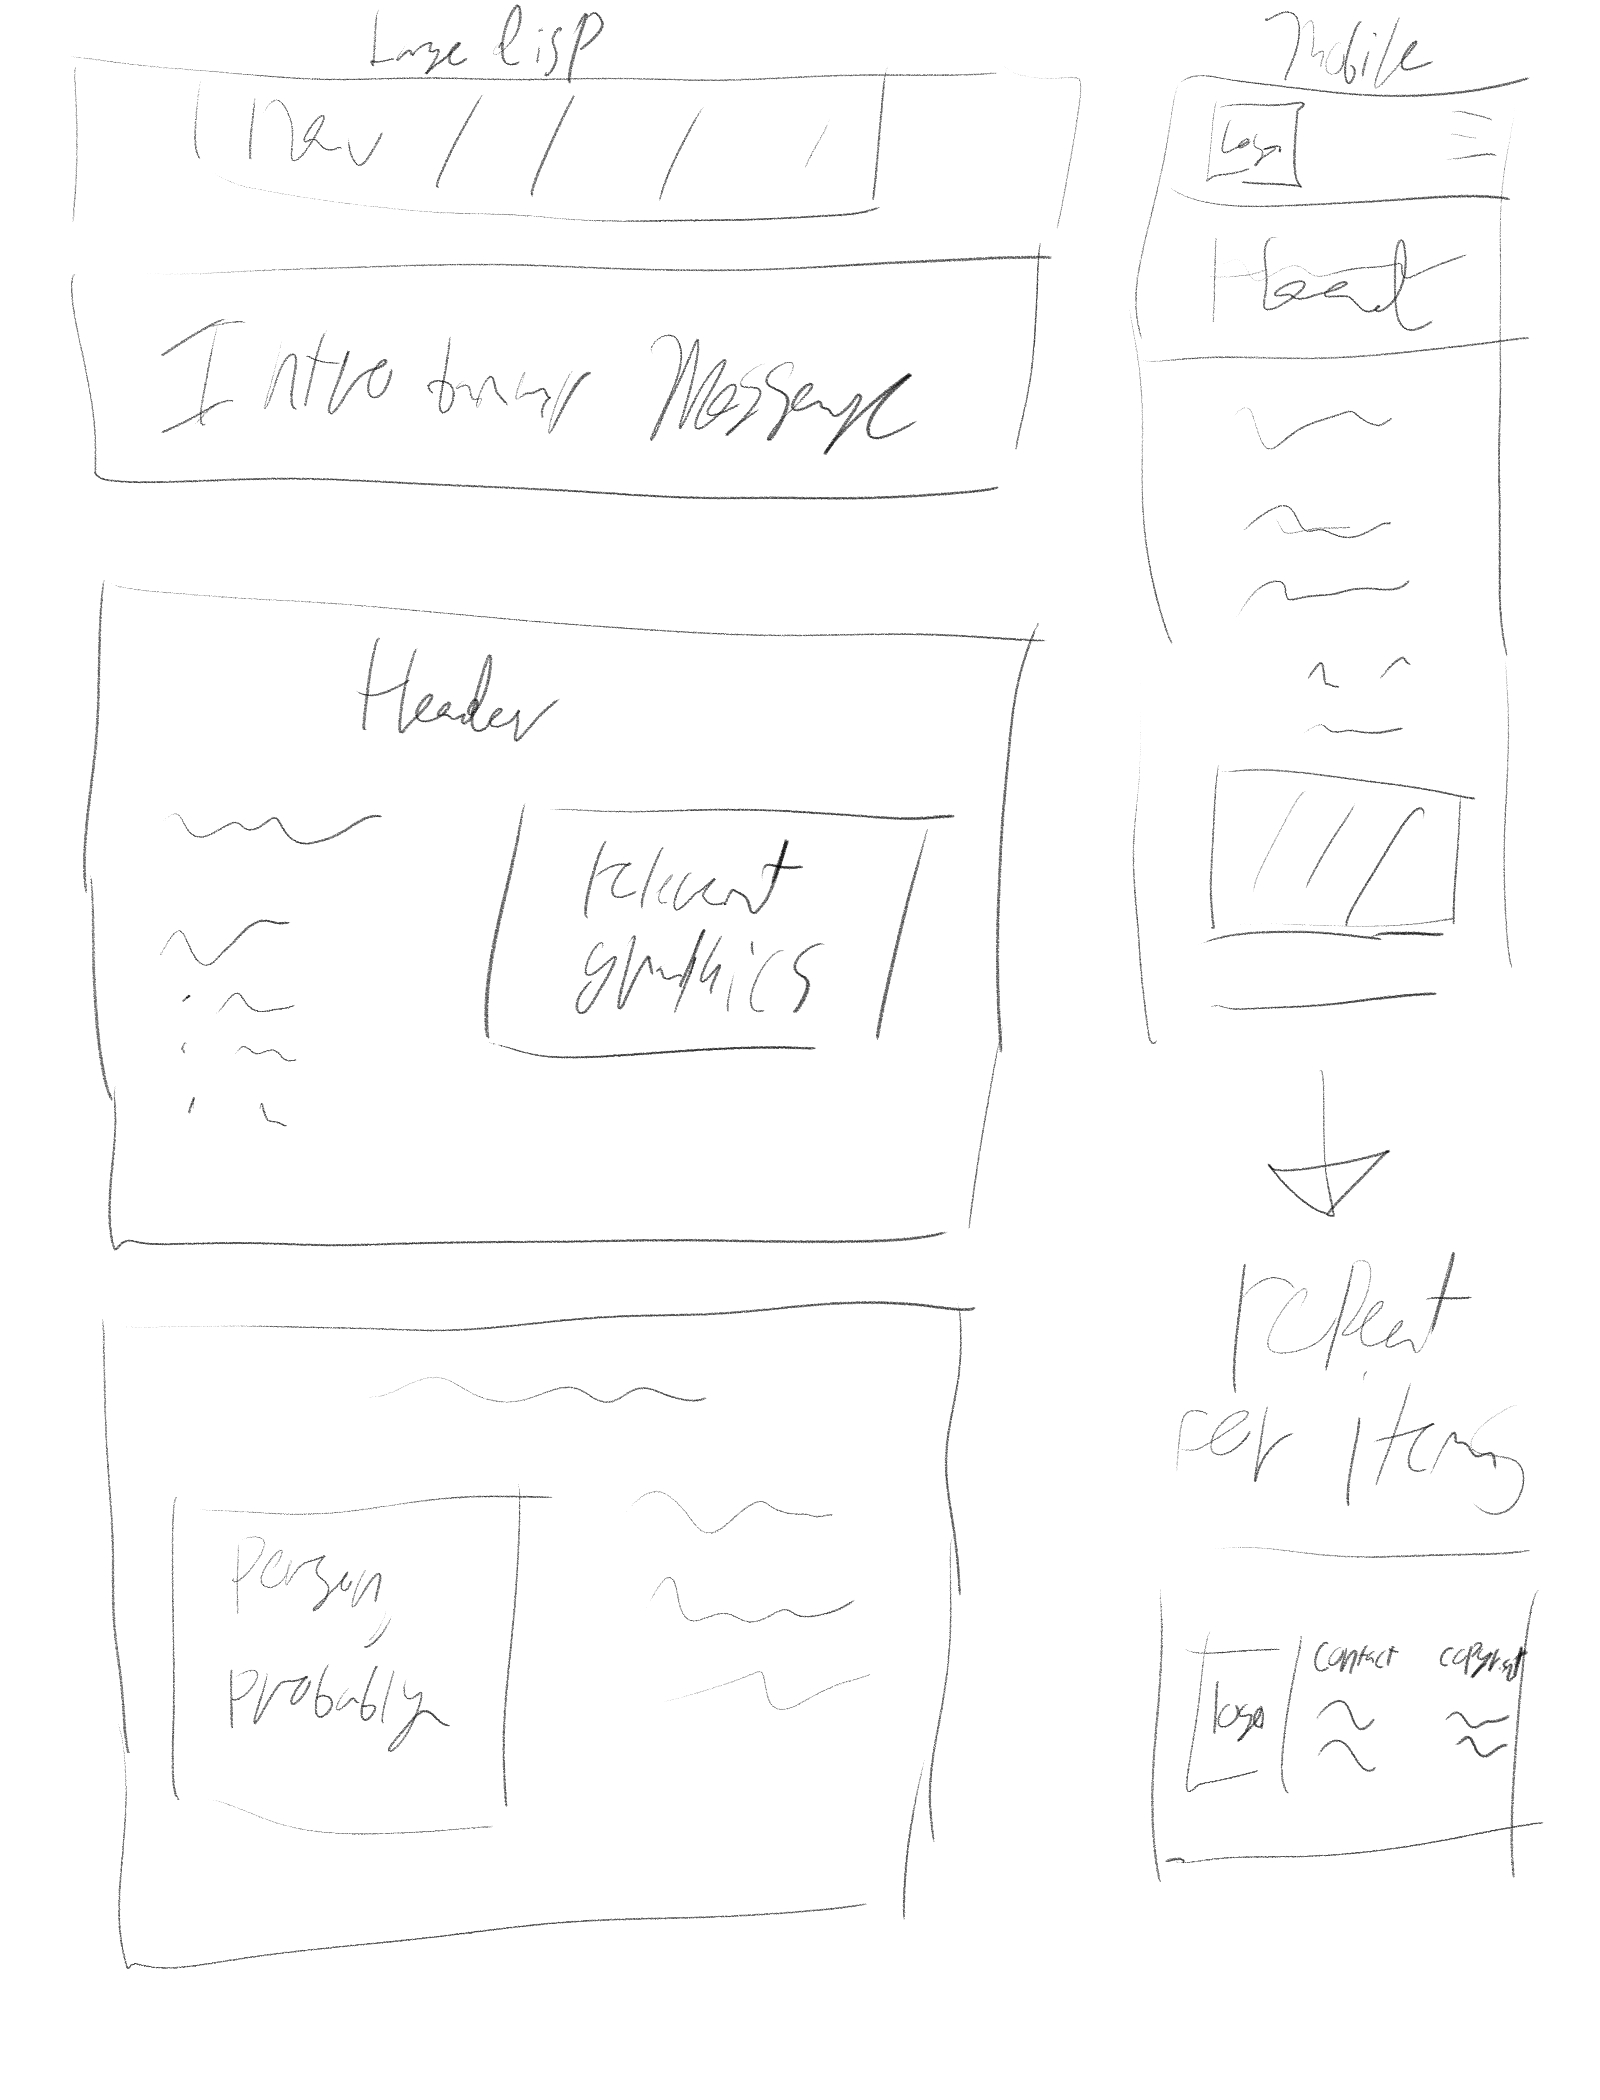 Large disp
Nav
Introductory Message
Header
relevant
graphics
person,
probably
Mobile
Logo
Head
repeat
per items
logo
contact
copyright